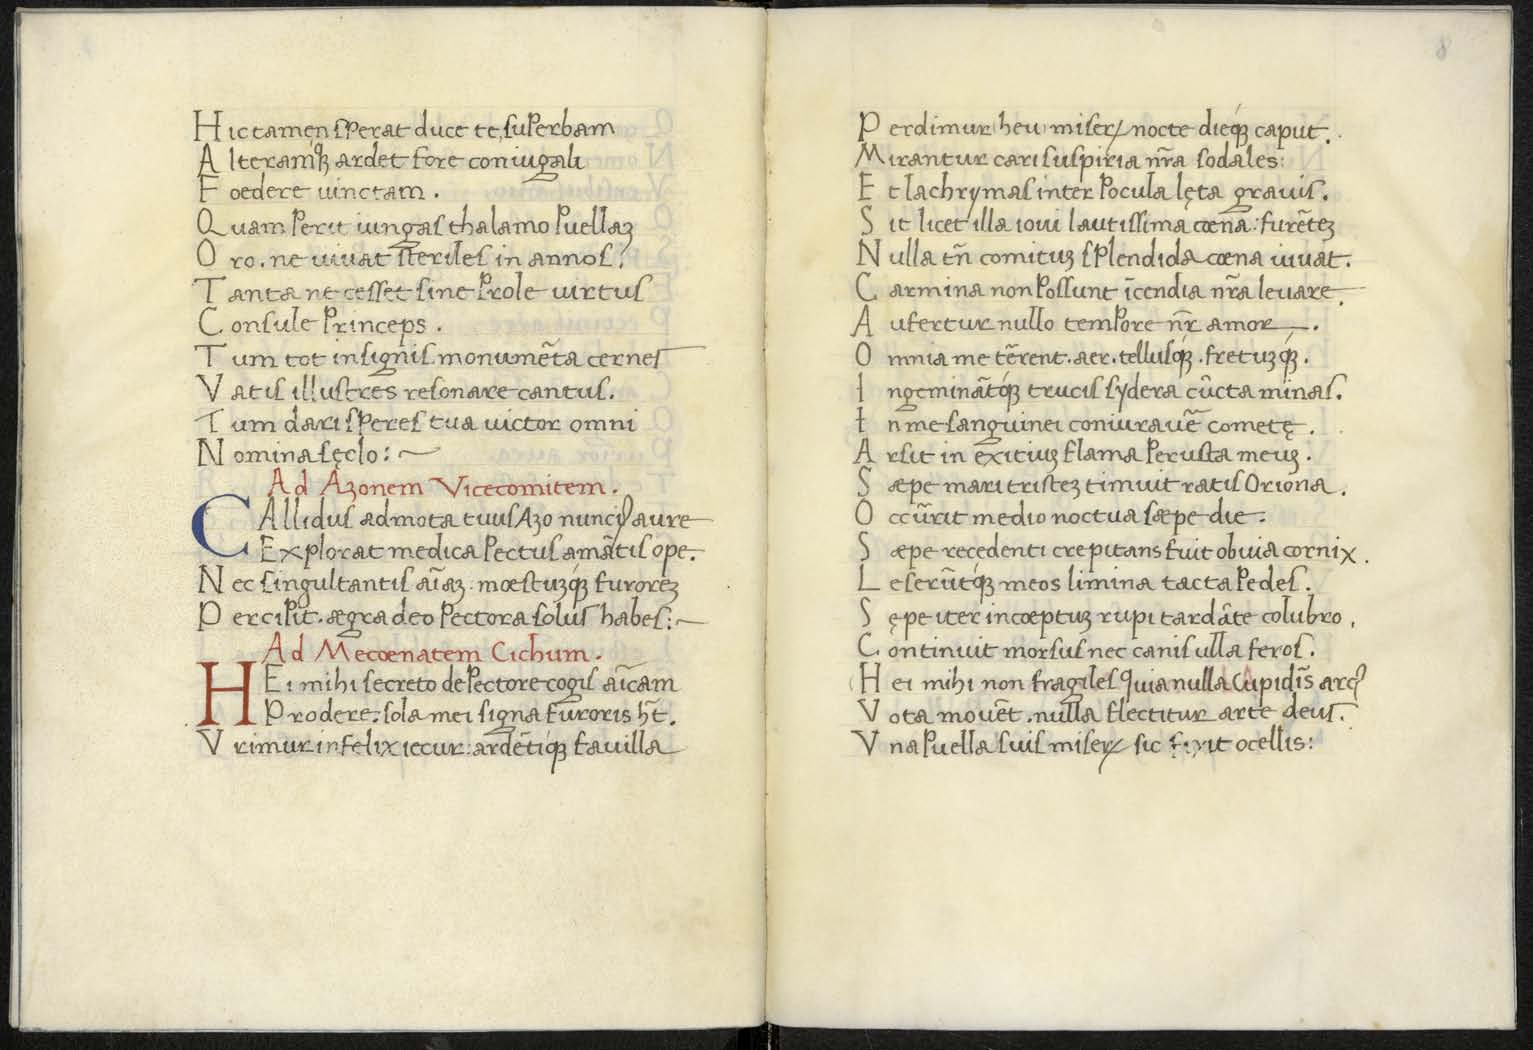 Hic tamen sperat duce te, superbam
Alteramq̃ꝫ ardet fore coniugali
Foedere uinctam.
Quam perit iungas thalamo puellaꝫ
Oro. ne uiuat steriles in annos.
Tanta ne cesset sine prole uirtus
Consule Princeps.
Tum tot insignis monumẽta cernes
Vatis illustres resonare cantus.
Tum dari speres tua uictor omni
Nomina sęclo:~
Ad Azonem Vicecomitem.
CAllidus admota tuus Azo nunciꝰ aure
Explorat medica pectus amãtis ope.
Nec singultantis aĩaꝫ. mœstuꝫqꝫ́ furoreꝫ
Percipit. ægra deo pectora solus habes:~
Ad Mecoenatem Cichum.
HEi mihi secreto de pectore cogis aĩcam
Prodere. sola mei signa furoris hñt.
Vrimur infelix iecur: ardẽtiqꝫ fauilla
8
Perdimur (heu) miserꝝ nocte dieqꝫ́ caput.
Mirantur cari suspiria nr̃a sodales:
Et lachrymas inter pocula lęta grauis.
Sit licet illa ioui lautissima cœna: furẽteꝫ
Nulla tñ comituꝫ splendida cœna iuuat.
Carmina non possunt ĩcendia nr̃a leuare
Aufertur nullo tempore nr̃ amor.
Omnia me tẽrent. aer. tellusqꝫ́. fretuꝫqꝫ́.
Ingeminãtqꝫ́ trucis sydera cũcta minas.
In me sanguinei coniurauẽ cometę.
Arsit in exitiuꝫ flama perusta meuꝫ.
Sæpe mari tristeꝫ timuit ratis Oriona.
Occũrit medio noctua sæpe die.
Sæpe recedenti crepitans fuit obuia cornix.
Leserũtqꝫ́ meos limina tacta pedes.
Sępe iter incœptuꝫ rupi tardãte colubro.
Continuit morsus nec canis ulla feros.
Hei mihi non fragiles quia nulla Cupidĩs arcꝰ
Vota mouẽt. nulla flectitur arte deus.
Vna puella suis miserꝝ sic fixit ocellis: